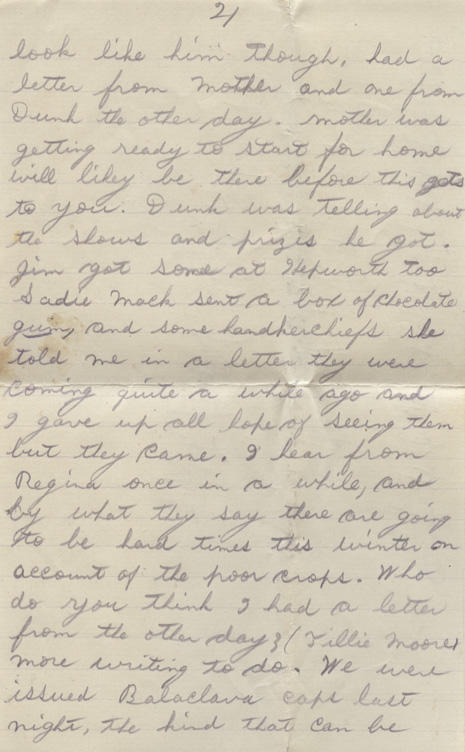 2/
look like him though, had a
letter from Mother and one from
Dunk the other day. Mother was
getting ready to start for home
will likey be there before this gets
to you. Dunk was telling about
the shows and prizes he got.
Jim got some at Hepworth too
Sadie Mack sent a box of chocolate
gum, and some handkerchiefs she
told me in a letter they were
coming quite a while ago and
I gave up all hope of seeing them
but they came. I hear from
Regina once in a while, and
by what they say there are going
to be hard times this winter on
account of the poor crops. Who
do you think I had a letter
from the other day? (Tillie Moore)
more writing to do. We were
issued Balaclava caps last
night, the kind that can be